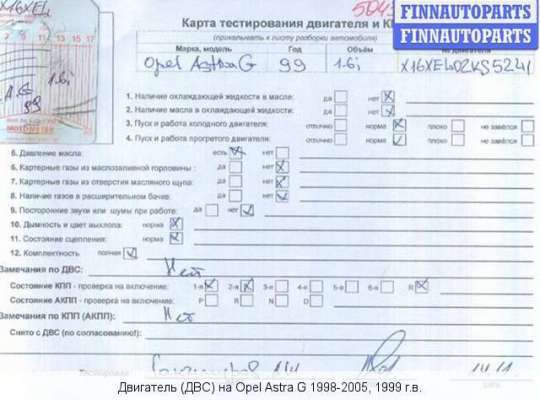 X16XEL
1.6i
99
FINNAUTOPARTS
FINNAUTOPARTS
Карта тестирования двигателя и
(прикалывать к листу разборки автомобиля)
Марка, модель Год Объём № двигателя
Opel Astra G 99 1.6i X16XEL02KS5241
1. Наличие охлаждающей жидкости в масле: да нет
2. Наличие масла в охлаждающей жидкости: да нет
3. Пуск и работа холодного двигателя: отлично норма плохо не завёлся
4. Пуск и работа прогретого двигателя: отлично норма плохо не завёлся
6. Давление масла: есть нет
6. Картерные газы из маслозаливной горловины : да нет
7. Картерные газы из отверстия масляного щупа: да нет
8. Наличие газов в расширительном бачке: да нет
9. Посторонние звуки или шумы при работе: да нет
10. Дымность и цвет выхлопа: норма
11. Состояние сцепления: норма
12. Комплектность полная
Замечания по ДВС: Нет
Состояние КПП - проверка на включение: 1-я 2-я 3-я 4-я 5-я 6-я R
Состояние АКПП - проверка на включение: P R N D
Замечания по КПП (АКПП): Нет
Снято с ДВС (по согласованию!):
Двигатель (ДВС) на Opel Astra G 1998-2005, 1999 г.в.